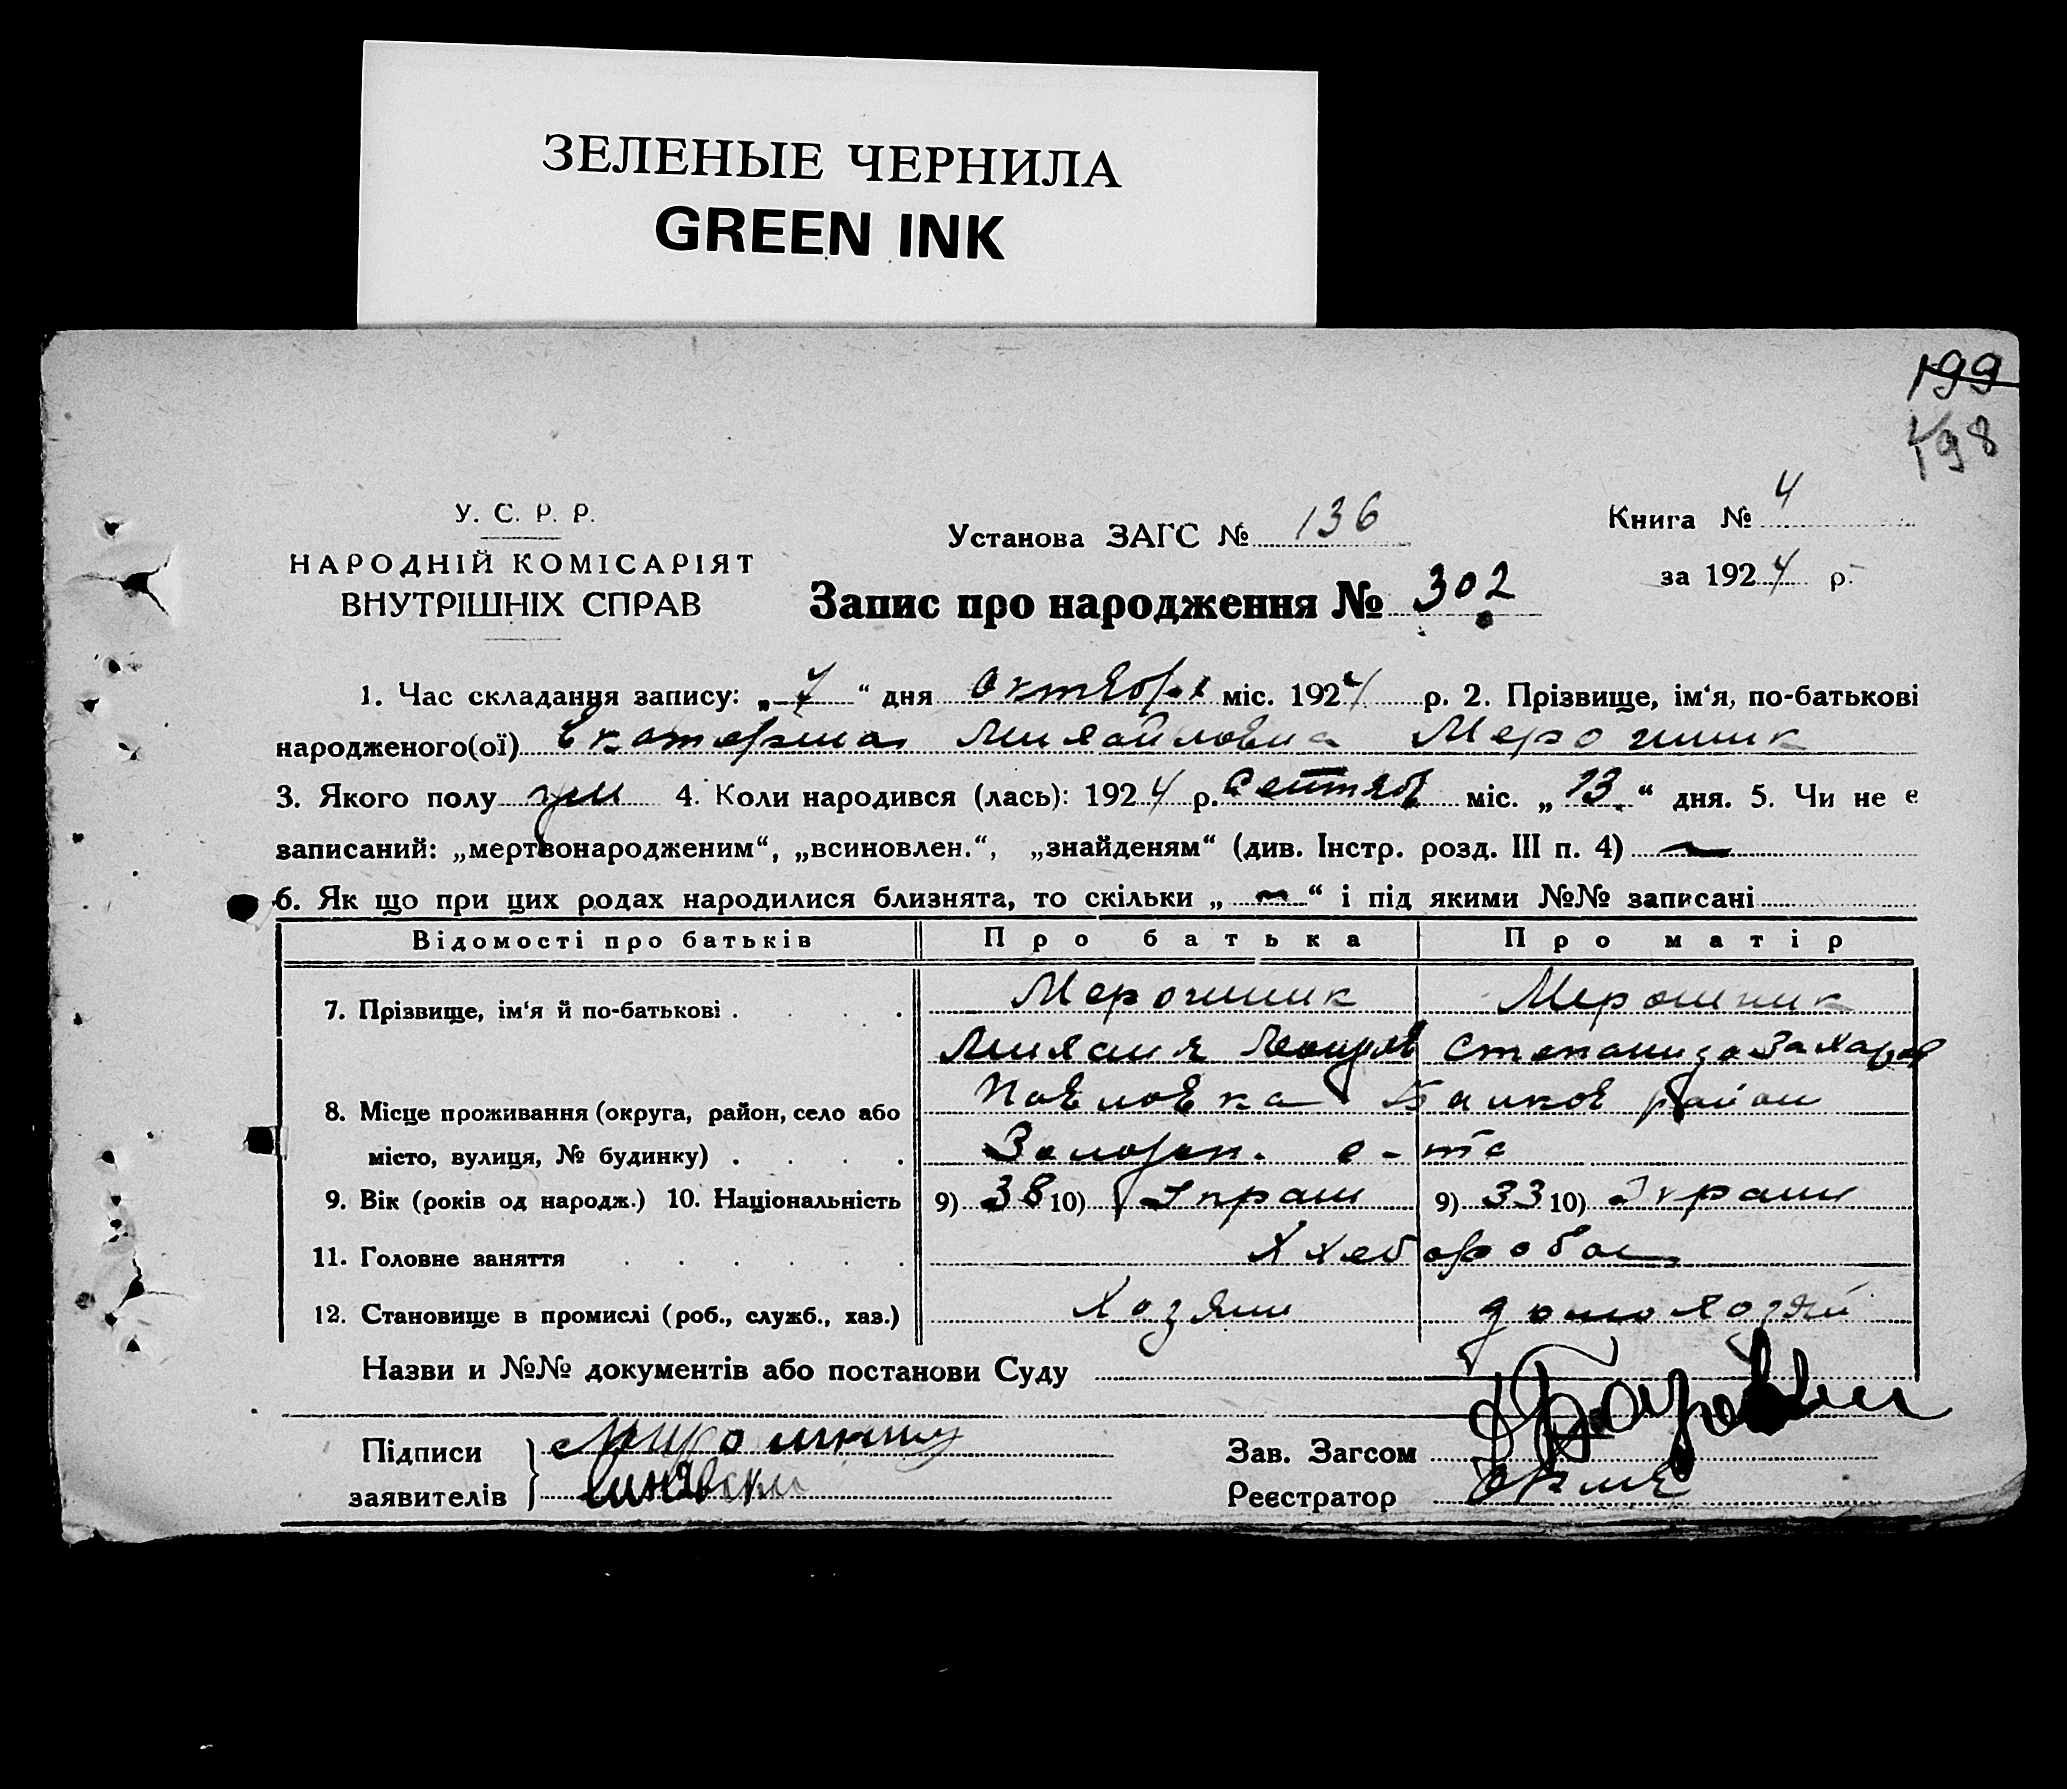 ЗЕЛЕНЫЕ ЧЕРНИЛА
GREEN INK
199
198
У. С. Р. Р.
НАРОДНІЙ КОМІСАРІЯТ
ВНУТРІШНІХ СПРАВ
Установа ЗАГС № 136
Книга № 4
за 1924 р.
Запис про народження № 302
1. Час складання запису: „7“ дня Октября міс. 1924 р. 2. Прізвище, ім'я, по-батькові
народженого(ої) Екатерина Михайловна Мерошник
3. Якого полу 4. Коли народився (лась): 1924 р. Сентяб міс. „13“ дня. 5. Чи не є
записаний: „мертвонародженим“, „всиновлен.“, „знайденям“ (див. Інстр. розд. III п. 4) —
6. Як що при цих родах народилися близнята, то скільки „—“ і під якими №№ записані
Відомості про батьків Про батька Про матір
7. Прізвище, ім'я й по-батькові Мерошник Мерошник
Михаил Степанида Захаров
8. Місце проживання (округа, район, село або Павловка район
місто, вулиця, № будинку)
9. Вік (років од народж.) 10. Національність 9) 38 10) Украин 9) 33 10) Украин
11. Головне заняття Хлебороб
12. Становище в промислі (роб., служб., хаз.) Хозяин домохозяй
Назви и №№ документів або постанови Суду
Підписи
заявителів
Зав. Загсом
Реєстратор